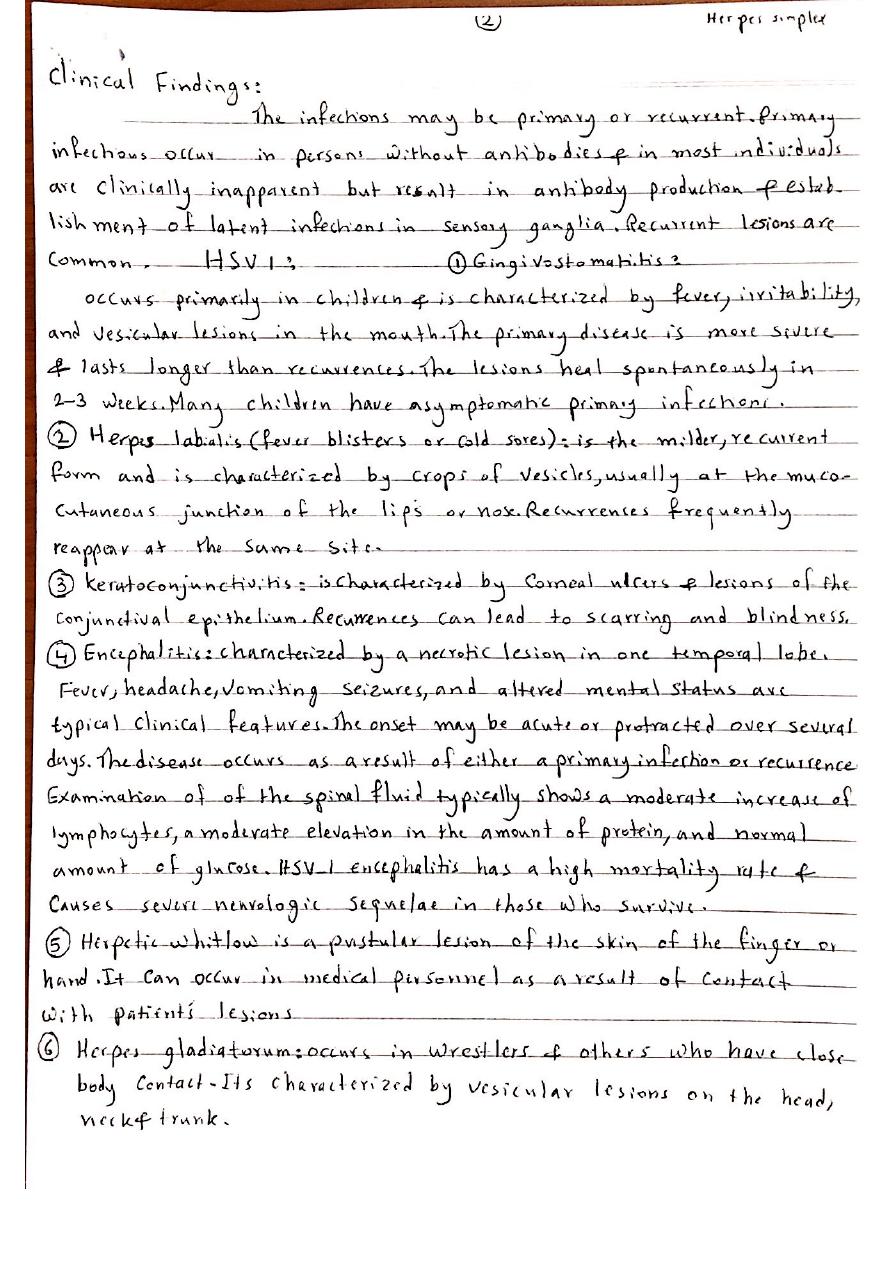 2
Herpes simplex
Clinical Findings:
The infections may be primary or recurrent. Primary
infections occur in persons without antibodies & in most individuals
are clinically inapparent but result in antibody production & estab-
lishment of latent infections in sensory ganglia. Recurrent lesions are
Common. HSV1: ① Gingivostomatitis:
occurs primarily in children & is characterized by fever, irritability,
and vesicular lesions in the mouth. The primary disease is more sivere
& lasts longer than recurrences. The lesions heal spontaneously in
2-3 weeks. Many children have asymptomatic primary infections.
② Herpes labialis (fever blisters or cold sores): is the milder, recurrent
form and is characterized by crops of vesicles, usually at the muco-
cutaneous junction of the lips or nose. Recurrences frequently
reappear at the same site.
③ Keratoconjunctivitis: is characterized by Corneal ulcers & lesions of the
conjunctival epithelium. Recurrences can lead to scarring and blindness.
④ Encephalitis: characterized by a necrotic lesion in one temporal lobe.
Fever, headache, vomiting seizures, and altered mental status are
typical clinical features. The onset may be acute or protracted over several
days. The disease occurs as a result of either a primary infection or recurrence
Examination of of the spinal fluid typically shows a moderate increase of
lymphocytes, a moderate elevation in the amount of protein, and normal
amount of glucose. HSV_1 encephalitis has a high mortality rate &
Causes severe neurologic sequelae in those who survive.
⑤ Herpetic whitlow is a pustular lesion of the skin of the finger or
hand. It can occur in medical personnel as a result of contact
with patient's lesions
⑥ Herpes gladiatorum: occurs in wrestlers & others who have close
body Contact. Its characterized by vesicular lesions on the head,
neck & trunk.